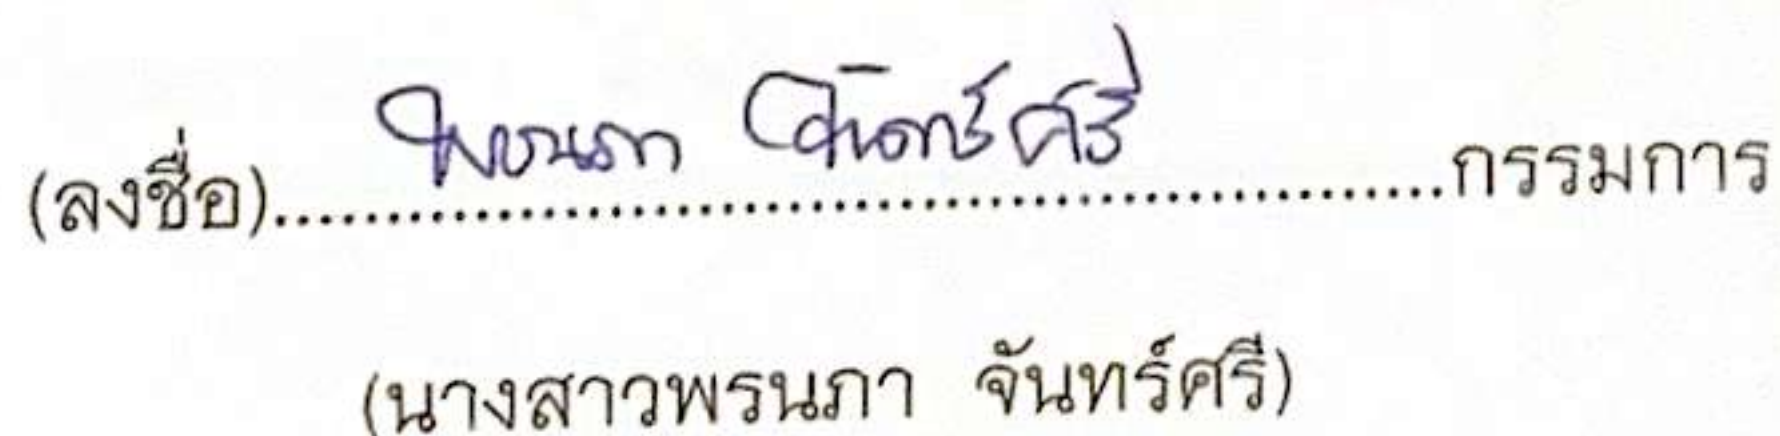 (ลงชื่อ)..........พรนภา จันทร์ศรี..........กรรมการ
(นางสาวพรนภา จันทร์ศรี)